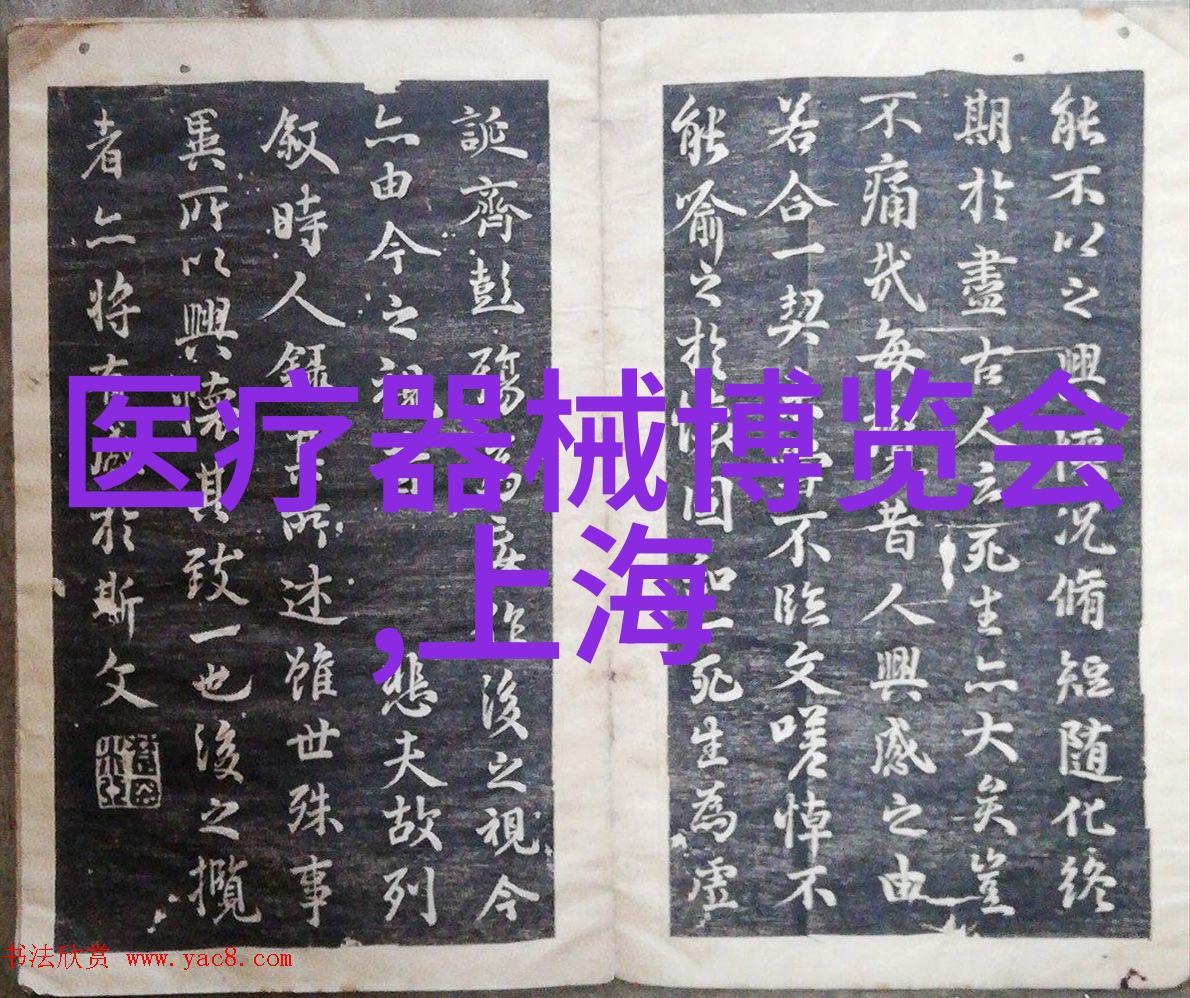 能不以之興懷况脩短随化終
期於盡古人云死生亦大矣豈
不痛哉每昔人興感之由
若合一契不臨文嗟悼不
能喻之於懷固知一死生為虛
誕齊彭殤為妄作後之視今
亦由今之視悲夫故列
叙時人錄其所述雖世殊事
異所以興懷其致一也後之攬
者亦将有感於斯文
医疗器械博览会
,上海
书法欣赏 www.yac8.com